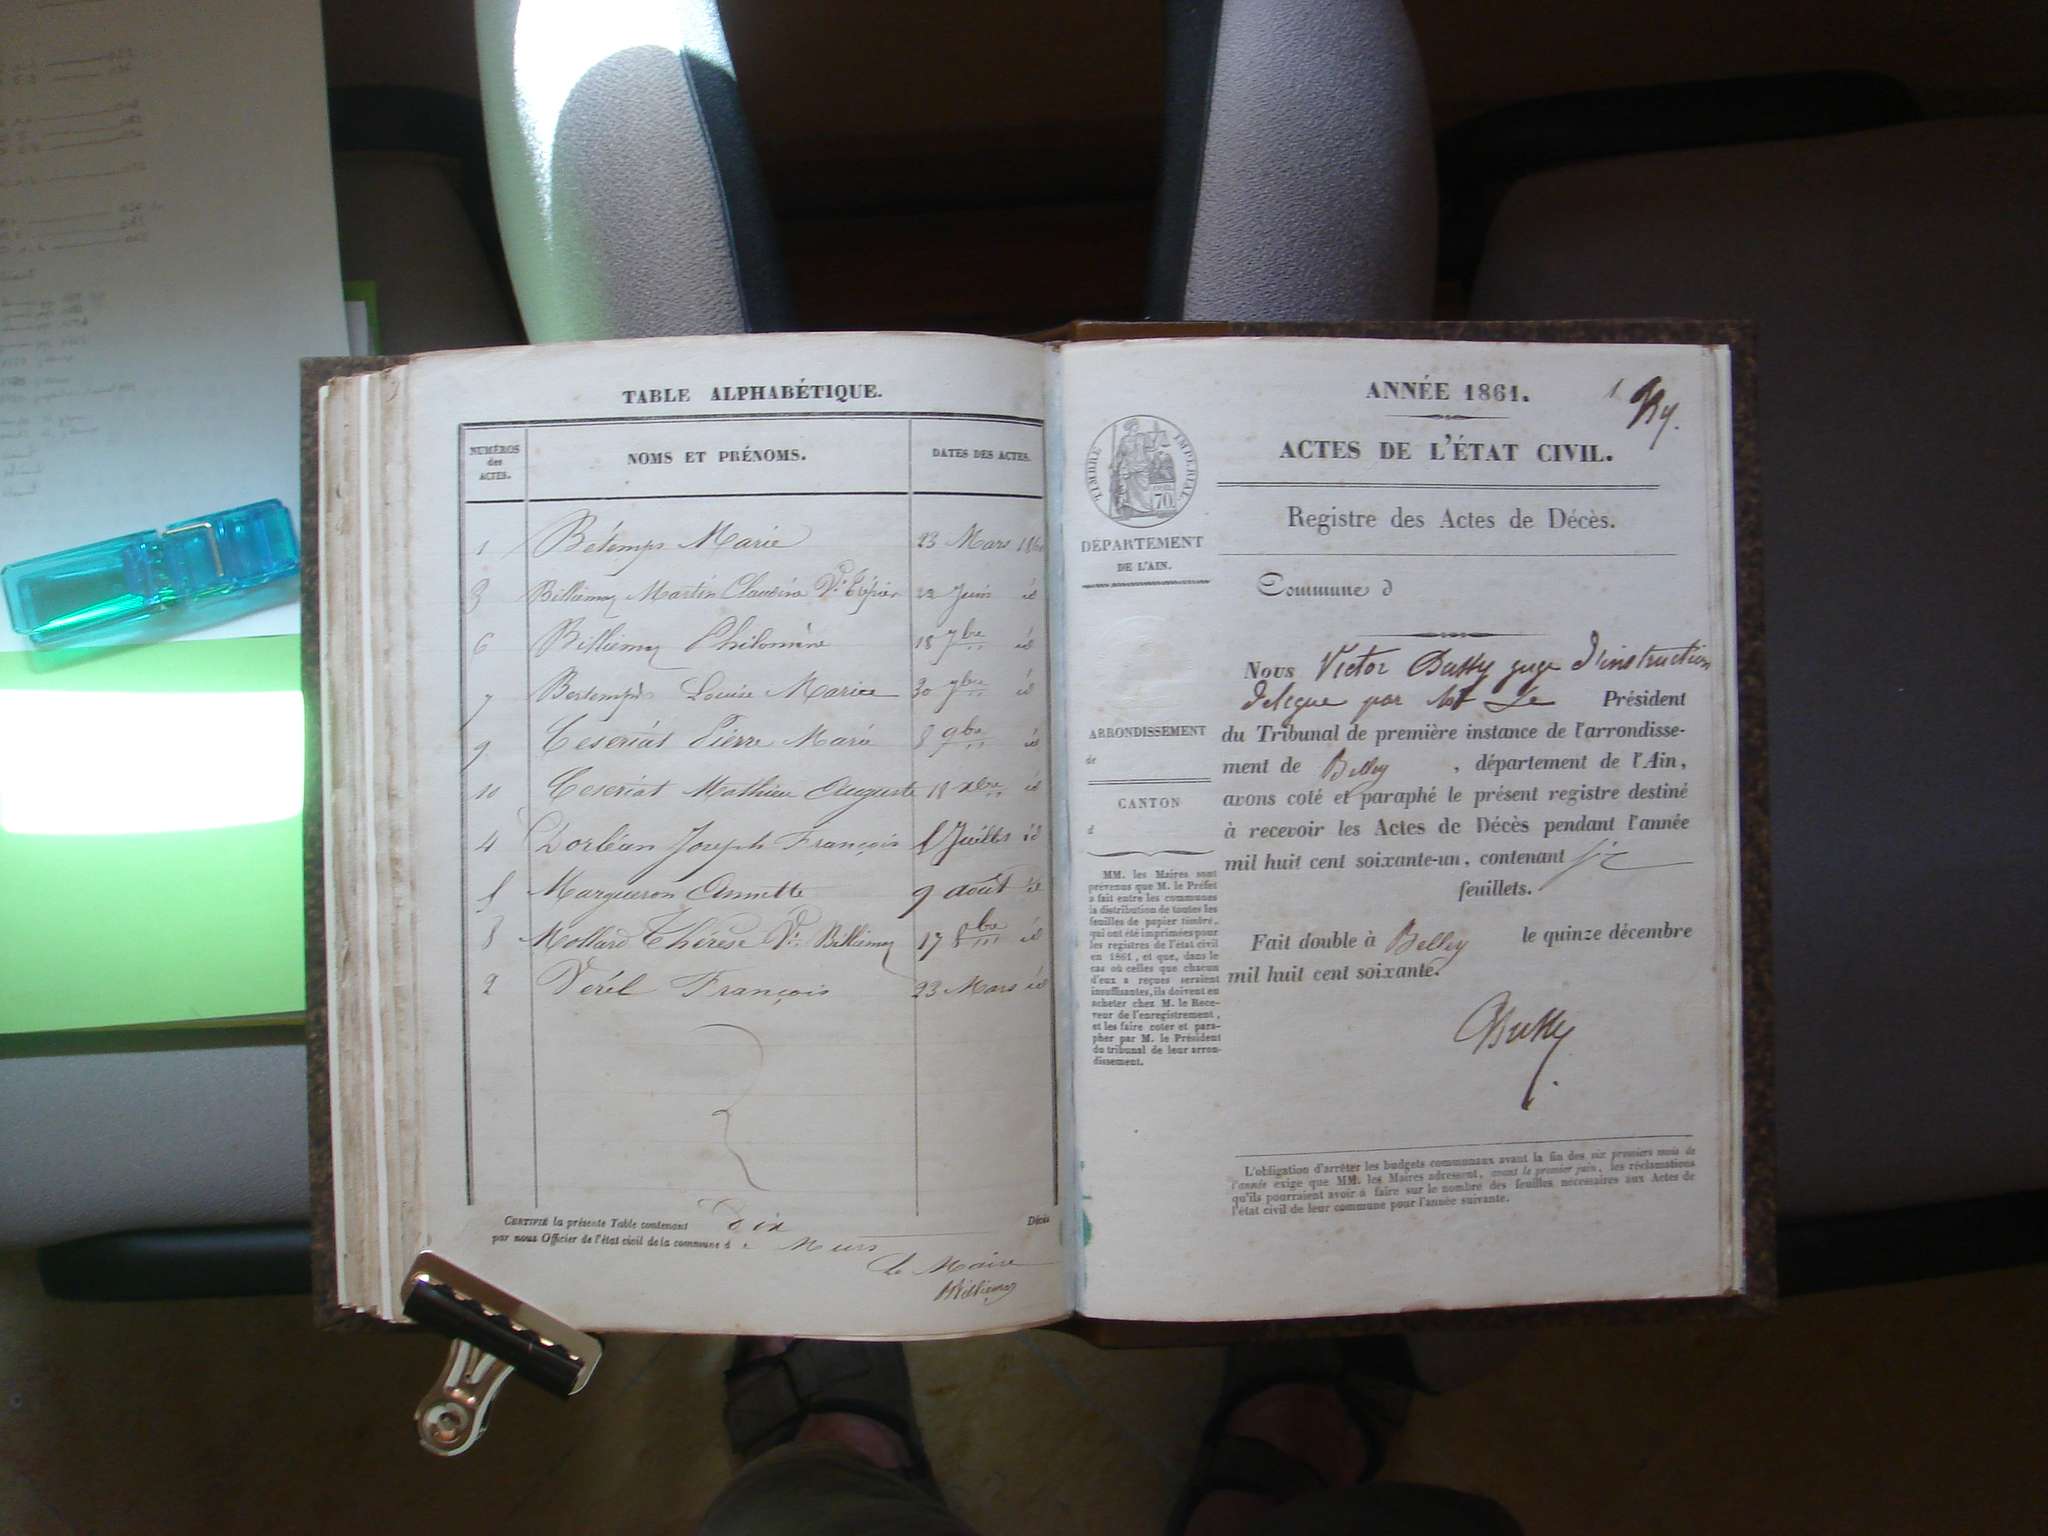 TABLE ALPHABÉTIQUE.
NUMÉROS
des
ACTES.
NOMS ET PRÉNOMS.
DATES DES ACTES.
1 Bétemps Marie 23 Mars 1860
3 Billiemaz Martin Claudine Ve Trépier 22 Juin id
6 Billiemaz Philomène 18 7bre id
7 Bertemps Louise Marie 30 7bre id
9 Ceseriat Pierre Marie 8 9bre id
10 Ceseriat Mathieu Auguste 18 xbre id
4 Dorléan Joseph François 8 Juillet id
5 Margueron Annette 9 août id
8 Mollard Thérèse Ve Billiemaz 17 8bre id
2 Vérel François 23 Mars id
CERTIFIÉ la présente Table contenant Dix Décès
par nous Officier de l'état civil de la commune de Murs
Le Maire
Billiemaz
ANNÉE 1861.
1
ACTES DE L'ÉTAT CIVIL.
TIMBRE IMPERIAL
70
Registre des Actes de Décès.
DÉPARTEMENT
DE L'AIN.
Commune d
Nous Victor Dussy juge d'instruction
delegue par Mr Le Président
du Tribunal de première instance de l'arrondisse-
ment de Belley , département de l'Ain,
avons coté et paraphé le présent registre destiné
à recevoir les Actes de Décès pendant l'année
mil huit cent soixante-un, contenant six
feuillets.
Fait double à Belley le quinze décembre
mil huit cent soixante.
Dussy
ARRONDISSEMENT
de
CANTON
d
MM. les Maires sont
prévenus que M. le Préfet
a fait entre les communes
la distribution de toutes les
feuilles de papier timbré,
qui ont été imprimées pour
les registres de l'état civil
en 1861, et que, dans le
cas où celles que chacun
d'eux a reçues seraient
insuffisantes, ils doivent en
acheter chez M. le Rece-
veur de l'enregistrement,
et les faire coter et para-
pher par M. le Président
du tribunal de leur arron-
dissement.
L'obligation d'arrêter les budgets communaux avant la fin des six premiers mois de
l'année exige que MM. les Maires adressent, avant le premier juin, les réclamations
qu'ils pourraient avoir à faire sur le nombre des feuilles nécessaires aux Actes de
l'état civil de leur commune pour l'année suivante.